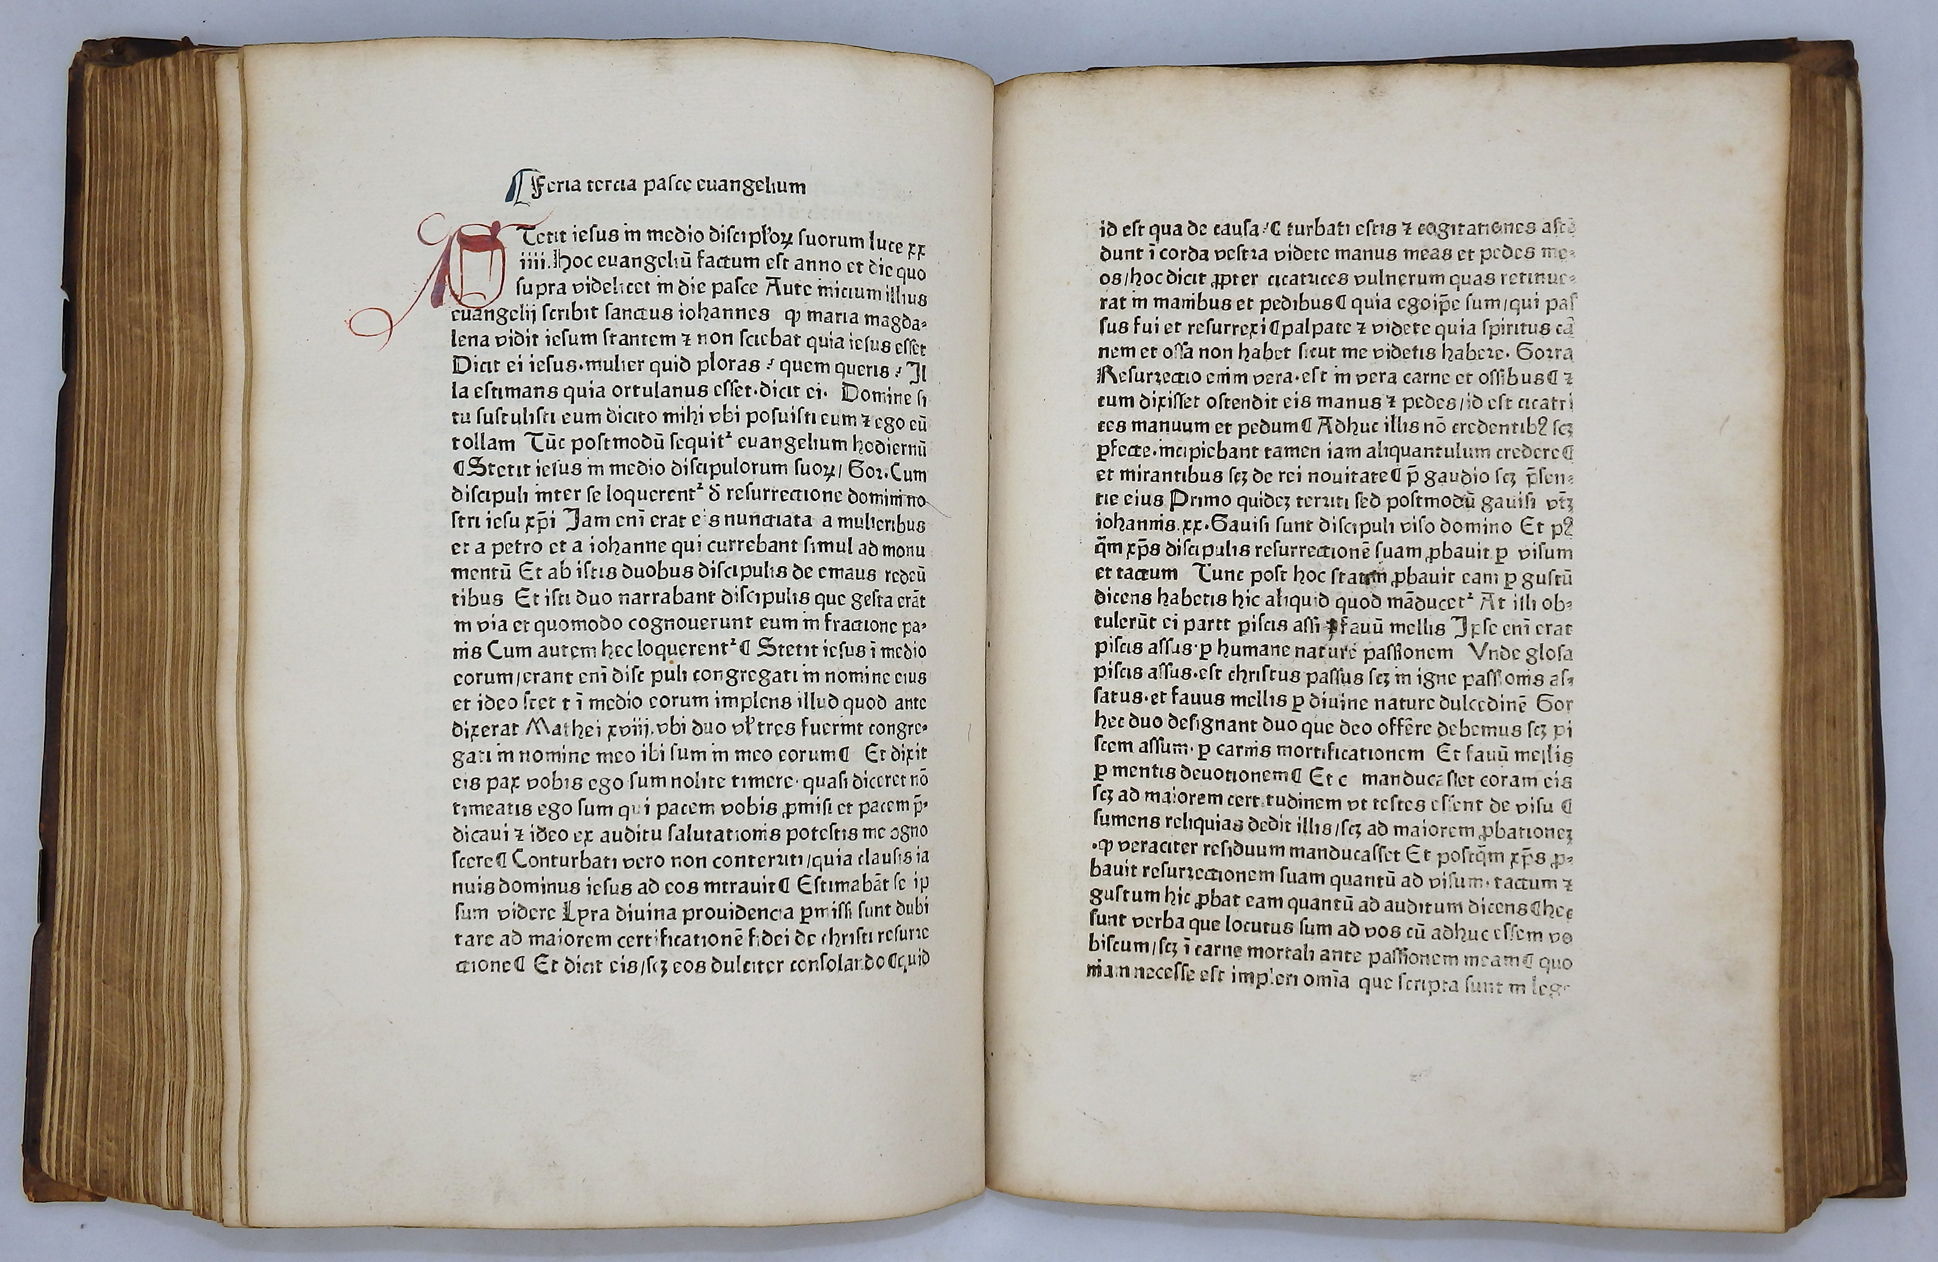 Feria tercia pasce euangelium
Tetit iesus in medio discipłoꝝ suorum luce xx
iiii. Hoc euangeliū factum est anno et die quo
supra videlicet in die pasce Ante inicium illius
euangelij scribit sanctus iohannes ꝙ maria magda⸗
lena vidit iesum stantem ⁊ non sciebat quia iesus esset
Dicit ei iesus·mulier quid ploras ? quem queris ? Il
la estimans quia ortulanus esset·dicit ei· Domine si
tu sustulisti eum dicito mihi vbi posuisti eum ⁊ ego eū
tollam Tūc postmodū sequit᷑ euangelium hodiernū
¶ Stetit iesus in medio discipulorum suoꝝ/ Gor. Cum
discipuli inter se loquerent᷑ ď resurrectione domini no
stri iesu xp̄i Jam eni erat eis nunctiata a mulieribus
et a petro et a iohanne qui currebant simul ad monu
mentū Et ab istis duobus discipulis de emaus redeū
tibus Et isti duo narrabant discipulis que gesta erāt
in via et quomodo cognouerunt eum in fractione pa⸗
nis Cum autem hec loquerent᷑ ¶ Stetit iesus ī medio
eorum/erant enī disc puli congregati in nomine eius
et ideo stet t ī medio eorum implens illud quod ante
dixerat Mathei xviij. vbi duo vł tres fuerint congre⸗
gati in nomine meo ibi sum in meo eorum ¶ Et dixit
eis pax vobis ego sum nolite timere· quasi diceret nō
timeatis ego sum qui pacem vobis ꝓmisi et pacem p̄⸗
dicaui ⁊ ideo ex auditu salutationis potestis me ogno
scere ¶ Conturbati vero non conterriti/quia clausis ia
nuis dominus iesus ad eos intrauit ¶ Estimabāt se ip
sum videre Lyra diuina prouidencia ꝑmissi sunt dubi
tare ad maiorem certificationē fidei de christi resurre
ctione ¶ Et dicit eis/scꝫ eos dulciter consolando ¶ quid
id est qua de causa ? ¶ turbati estis ⁊ cogitationes ascē
dunt ī corda vestra videte manus meas et pedes me⸗
os/hoc dicit ꝓpter cicatrices vulnerum quas retinue⸗
rat in manibus et pedibus ¶ quia ego ip̄e sum/qui pas
sus fui et resurrexi ¶ palpate ⁊ videte quia spiritus car̄
nem et ossa non habet sicut me videtis habere. Gorra
Resurrectio enim vera·est in vera carne et ossibus ¶ ⁊
cum dixisset ostendit eis manus ⁊ pedes/id est cicatri
ces manuum et pedum ¶ Adhuc illis nō credentibꝰ scꝫ
ꝑfecte·incipiebant tamen iam aliquantulum credere ¶
et mirantibus scꝫ de rei nouitate ¶ p̄ gaudio scꝫ p̄sen⸗
tie eius Primo quidez territi sed postmodū gauisi vtꝫ
iohannis.xx. Gauisi sunt discipuli viso domino Et pꝰ
q̄m xp̄s discipulis resurrectionē suam ꝓbauit ꝑ visum
et tactum Tunc post hoc statim ꝓbauit eam ꝑ gustū
dicens habetis hic aliquid quod māducet᷑ At illi ob⸗
tulerūt ei partē piscis assi ⁊ fauū mellis Ipse enī erat
piscis assus·ꝑ humane nature passionem Vnde glosa
piscis assus·est christus passus scꝫ in igne passionis as⸗
satus·et fauus mellis ꝑ diuine nature dulcedinē Gor
hec duo designant duo que deo offerre debemus scꝫ pi
scem assum· ꝑ carnis mortificationem Et fauū mellis
ꝑ mentis deuotionem ¶ Et c manducasset coram eis
scꝫ ad maiorem cert tudinem vt testes essent de visu ¶
sumens reliquias dedit illis/scꝫ ad maiorem ꝓbationeꝫ
·ꝙ veraciter residuum manducasset Et postq̄m xp̄s ꝓ⸗
bauit resurrectionem suam quantū ad visum· tactum ⁊
gustum hic ꝓbat eam quantū ad auditum dicens ¶ hec
sunt verba que locutus sum ad vos cū adhuc essem vo
biscum/scꝫ ī carne mortali ante passionem meam ¶ quo
niam necesse est impleri omīa que scripta sunt in lege